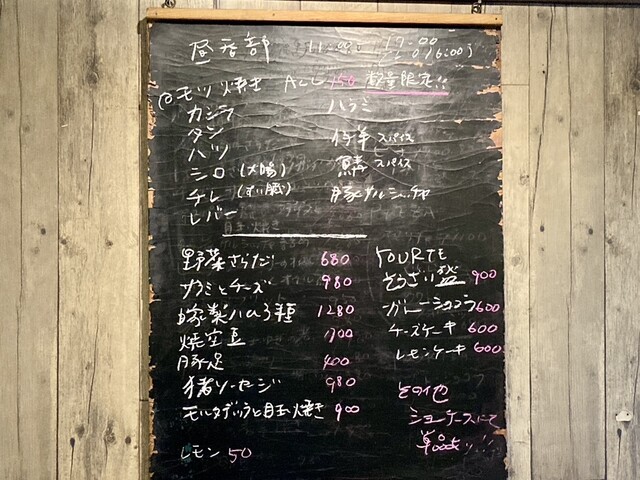 昼呑部 11:00 19:00
(L.O 16:00)
モツ焼き ALL 150 数量限定!!
カシラ
タン
ハツ
シロ (大腸)
チレ (すい臓)
レバー
ハラミ
仔羊 スパイス
スパイス
豚サルシッチャ
野菜さらだ 680
サラミとチーズ 980
自家製ハム3種 1280
焼空豆
豚足 400
猪ソーセージ 980
モルタデッラと目玉焼き 900
レモン 50
YOURTE
そうざい盛 900
ガトーショコラ 600
チーズケーキ 600
レモンケーキ 600
その他
ショーケースにて
単品あり!!